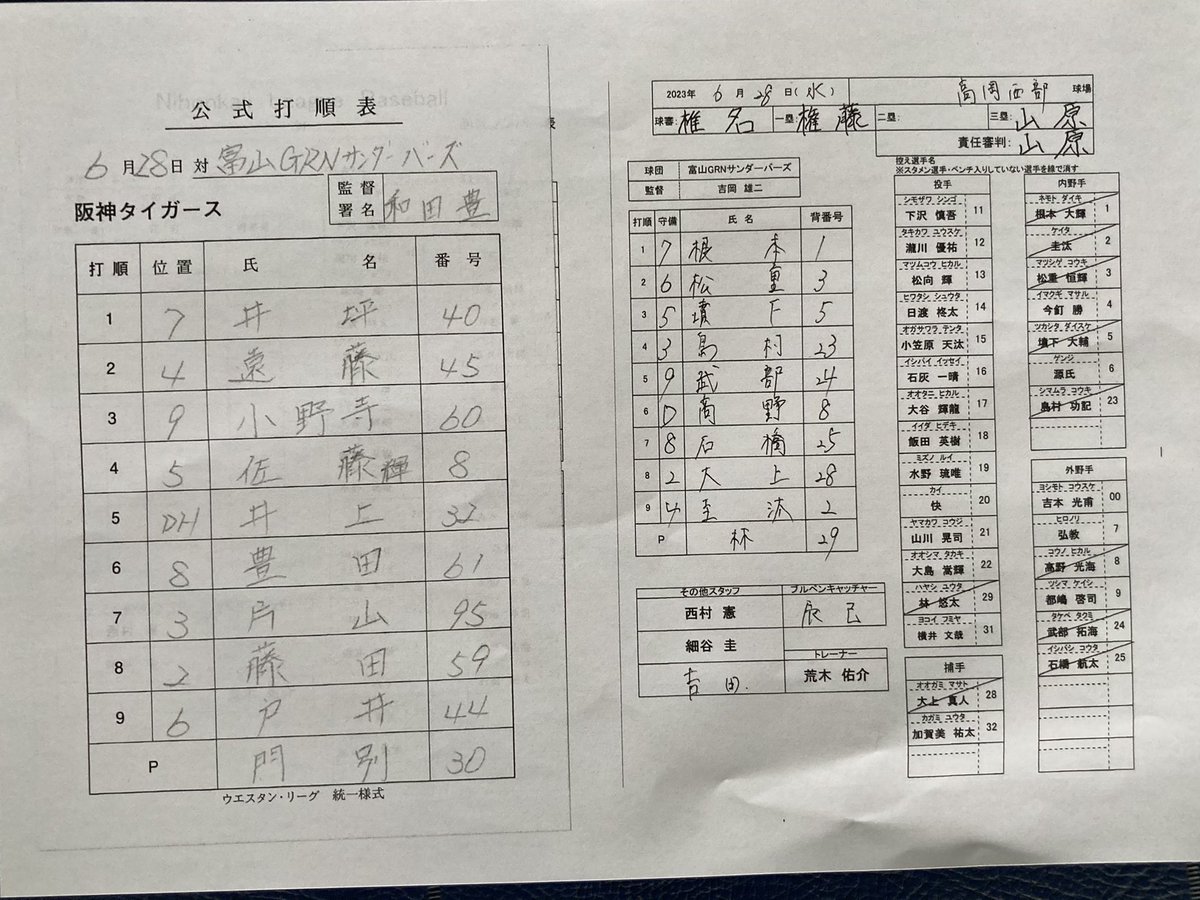 公式打順表
6月28日 対 富山GRNサンダーバーズ
阪神タイガース
監督署名 和田豊
打順 位置 氏名 番号
1 7 井坪 40
2 4 遠藤 45
3 9 小野寺 60
4 5 佐藤輝 8
5 DH 井上 32
6 8 豊田 61
7 3 片山 95
8 2 藤田 59
9 6 戸井 44
P 門別 30
ウエスタン・リーグ 統一様式
2023年 6月28日(水) 高岡西部 球場
球審: 椎名 一塁: 権藤 二塁: 三塁: 山原
責任審判: 山原
球団 富山GRNサンダーバーズ
監督 吉岡 雄二
打順 守備 氏名 背番号
1 7 根本 1
2 6 松重 3
3 5 墳下 5
4 3 島村 23
5 9 武部 24
6 D 高野 8
7 8 石橋 25
8 2 大上 28
9 4 圭汰 2
P 林 29
その他スタッフ
西村 憲
細谷 圭
吉田.
ブルペンキャッチャー
辰己
トレーナー
荒木 佑介
控え選手名
※スタメン選手・ベンチ入りしていない選手を線で消す
投手
シモザワ シンゴ
下沢 慎吾 11
タキカワ ユウスケ
瀧川 優祐 12
マツムコウ ヒカル
松向 輝 13
ヒワタシ シュウタ
日渡 柊太 14
オガサワラ テンタ
小笠原 天汰 15
イシバイ イッセイ
石灰 一晴 16
オオタニ ヒカル
大谷 輝龍 17
イイダ ヒデキ
飯田 英樹 18
ミズノ ルイ
水野 琉唯 19
カイ
快 20
ヤマカワ コウジ
山川 晃司 21
オオシマ タカキ
大島 嵩輝 22
ハヤシ ユウタ
林 悠太 29
ヨコイ フミヤ
横井 文哉 31
捕手
オオガミ マサト
大上 真人 28
カガミ ユウタ
加賀美 祐太 32
内野手
ネモト ダイキ
根本 大輝 1
ケイタ
圭汰 2
マツシゲ コウキ
松重 恒輝 3
イマクギ マサル
今釘 勝 4
ツカシタ ダイスケ
墳下 大輔 5
ゲンジ
源氏 6
シマムラ コウキ
島村 功記 23
外野手
ヨシモト コウスケ
吉本 光甫 00
ヒロノリ
弘教 7
コウノ ヒカル
高野 光海 8
ツシマ ケイシ
都嶋 啓司 9
タケベ タクミ
武部 拓海 24
イシバシ コウタ
石橋 航太 25